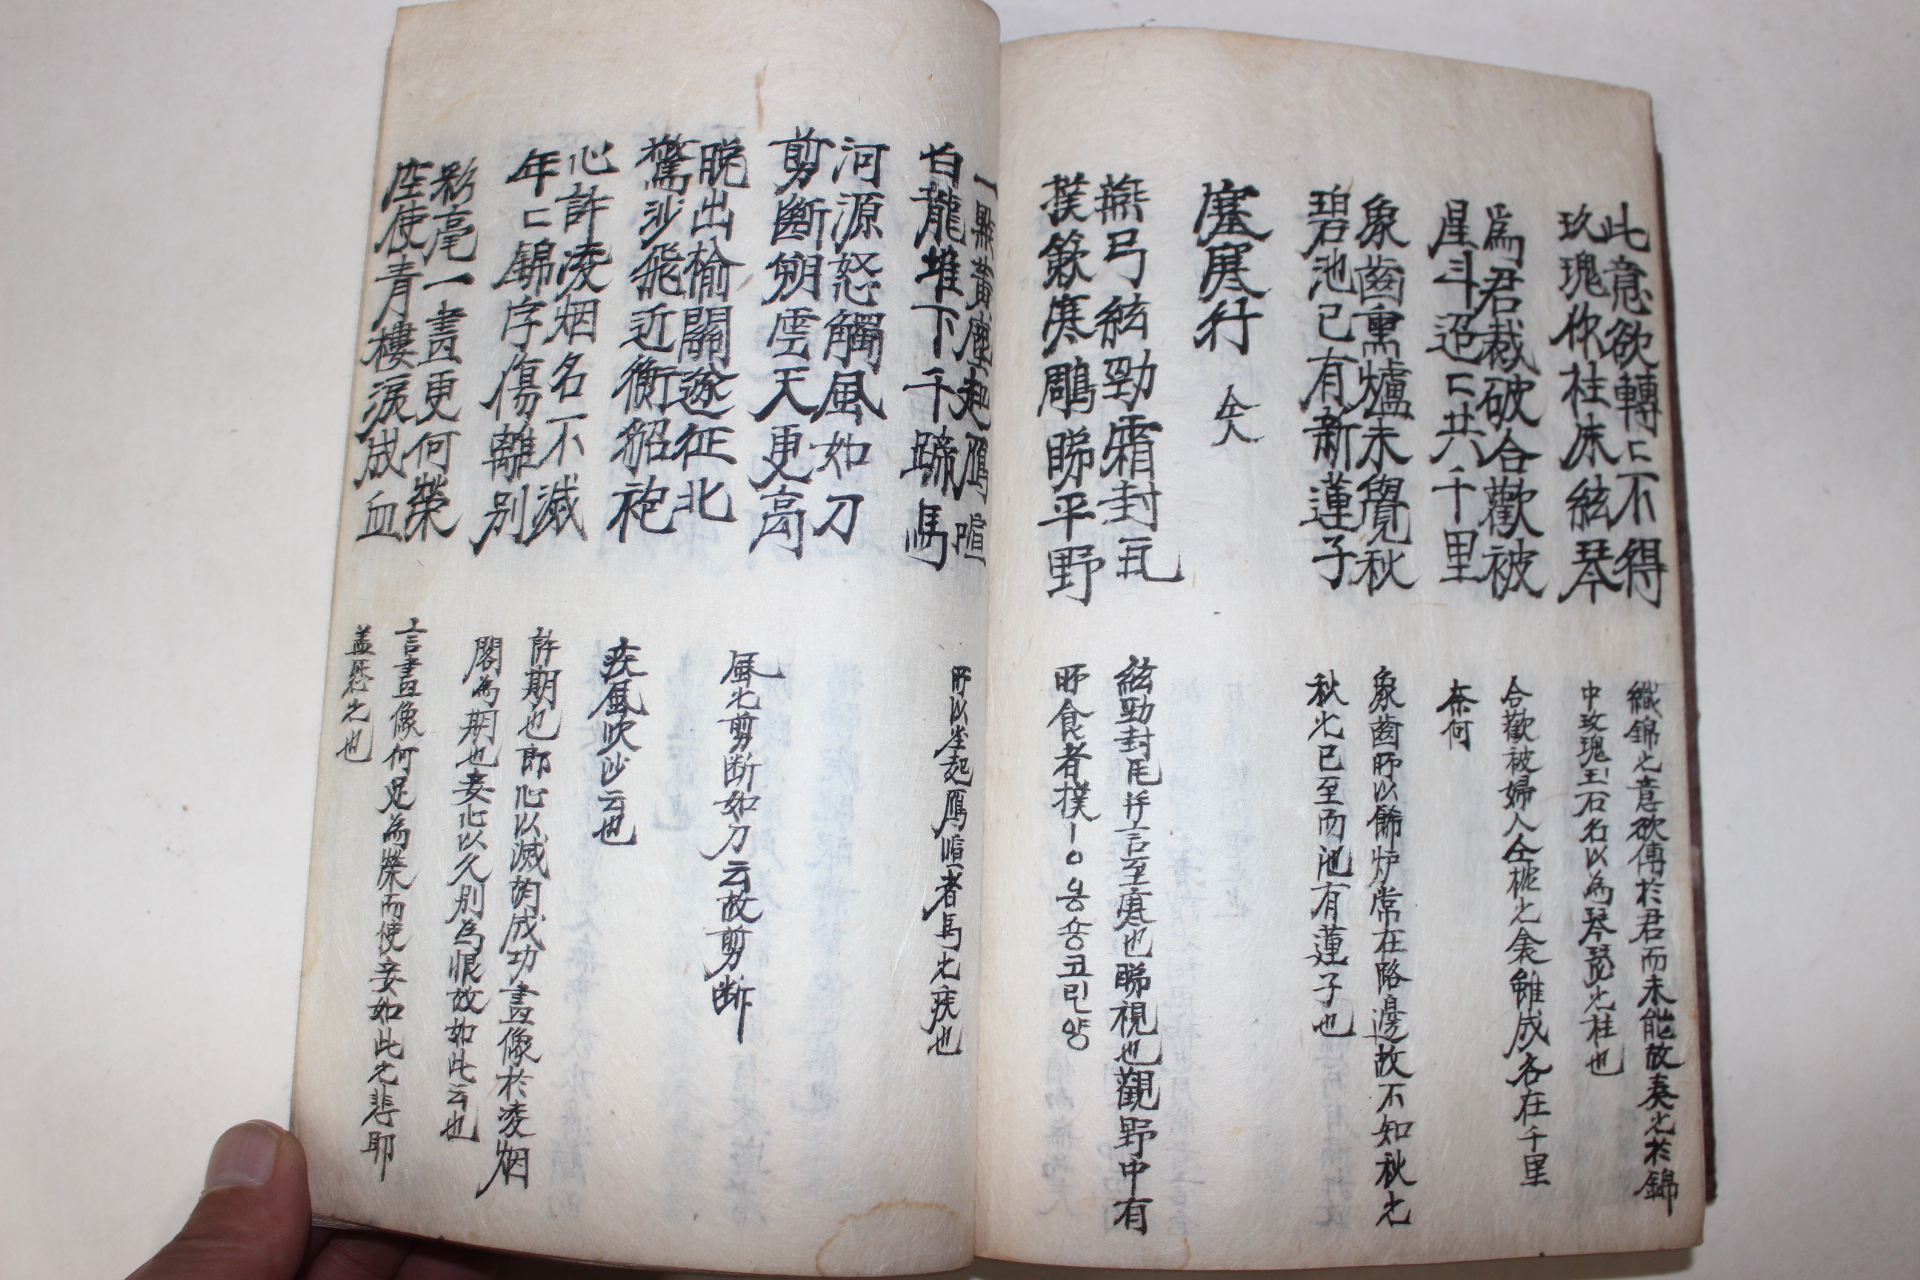 此意欲轉〻不得
玖瑰作柱朱絃琴
爲君裁破合歡被
星斗迢〻共千里
象齒熏爐未覺秋
碧池已有新蓮子
塞寒行
燕弓絃勁霜封瓦
撲簌寒鵰睇平野
一點黃塵起鴈喧
白龍堆下千蹄馬
河源怒觸風如刀
剪斷朔雲天更高
晩出榆關逐征北
驚沙飛近衝貂袍
心許凌烟名不滅
年〻錦字傷離別
彩毫一畫更何榮
座使青樓淚成血
織錦之意欲傳於君而未能故奏之於錦
中玫瑰玉石名以為琴瑟之柱也
合歡被婦人
雖成各在千里
奈何
象齒所以餙炉常在路邊故不知秋之
秋之已至而池有蓮子也
絃勁封瓦并言至寒也睇視也觀野中有
所食者撲
所以塵起鴈喧者馬之疾也
風之剪断如刀云故剪断
疾風吹沙云也
許期也郎心以滅
成功畫像於凌烟
閣為期也妾心以久別為恨故如此云也
言畫像何足為榮而使妾如此之悲耶
盖怨之也